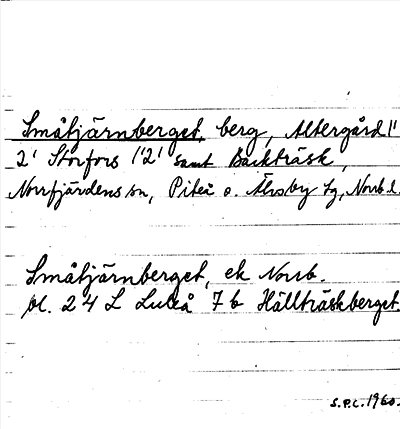 Småtjärnberget, berg, Altergård 1'
2' Storfors 1'2' samt Bäckträsk,
Norrfjärdens sn, Piteå o. Älvsby tg, Norrb. l.
Småtjärnberget, ek Norrb.
bl. 24 L Luleå 7 b Hällträskberget.
S.P.C. 1960.